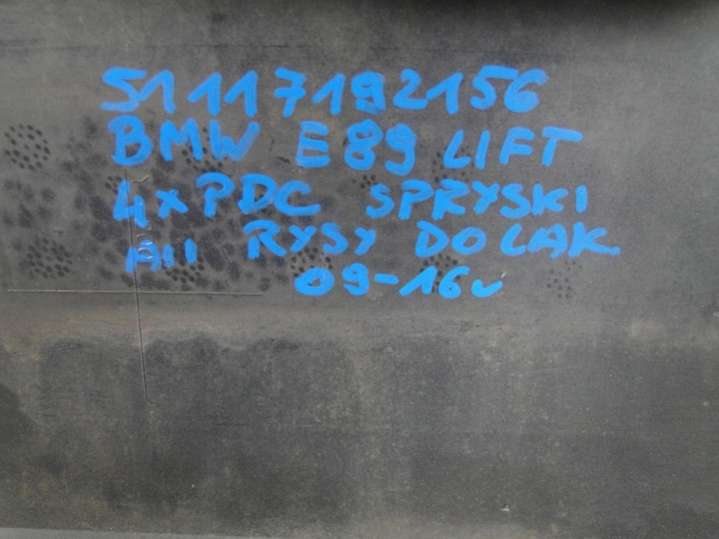 51117192156
BMW E89 LIFT
4xPDC SPRYSKI
A11 RYSY DO LAK.
09-16